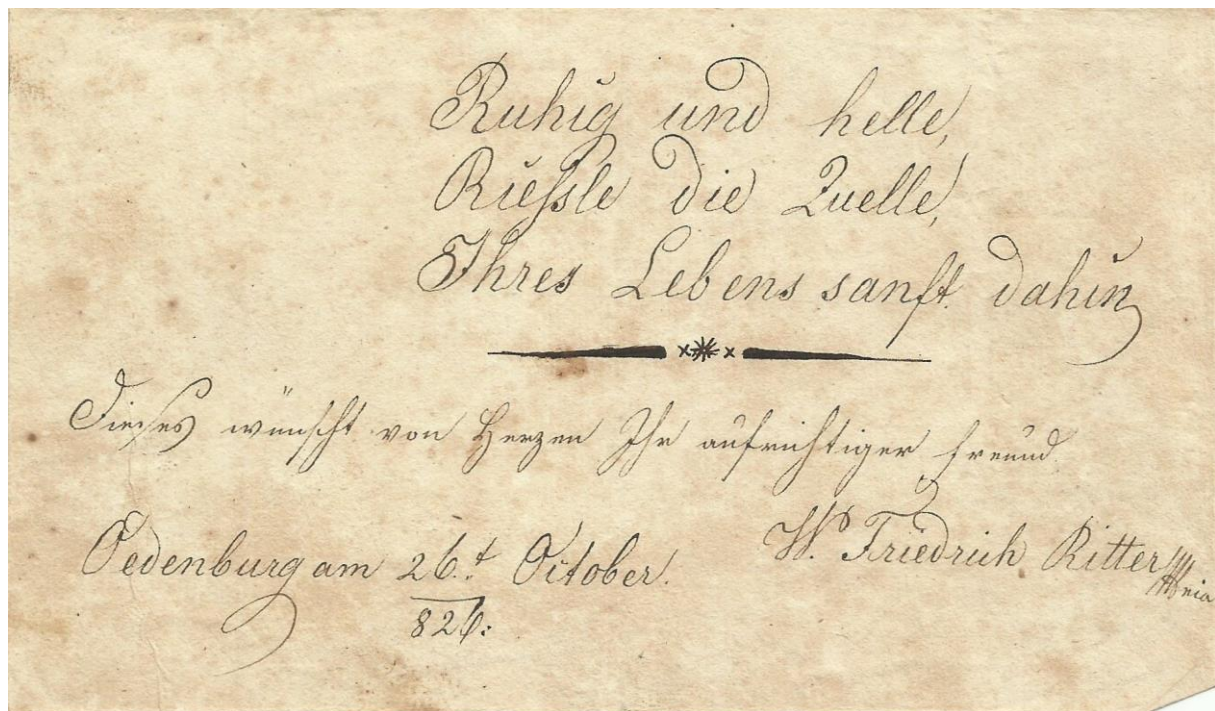 Ruhig und helle,
Riesle die Quelle,
Ihres Lebens sanft dahin
Dieses wünscht von Herzen Ihr aufrichtiger Freund
W. Friedrich Ritter
Oedenburg am 26.t October.
826.